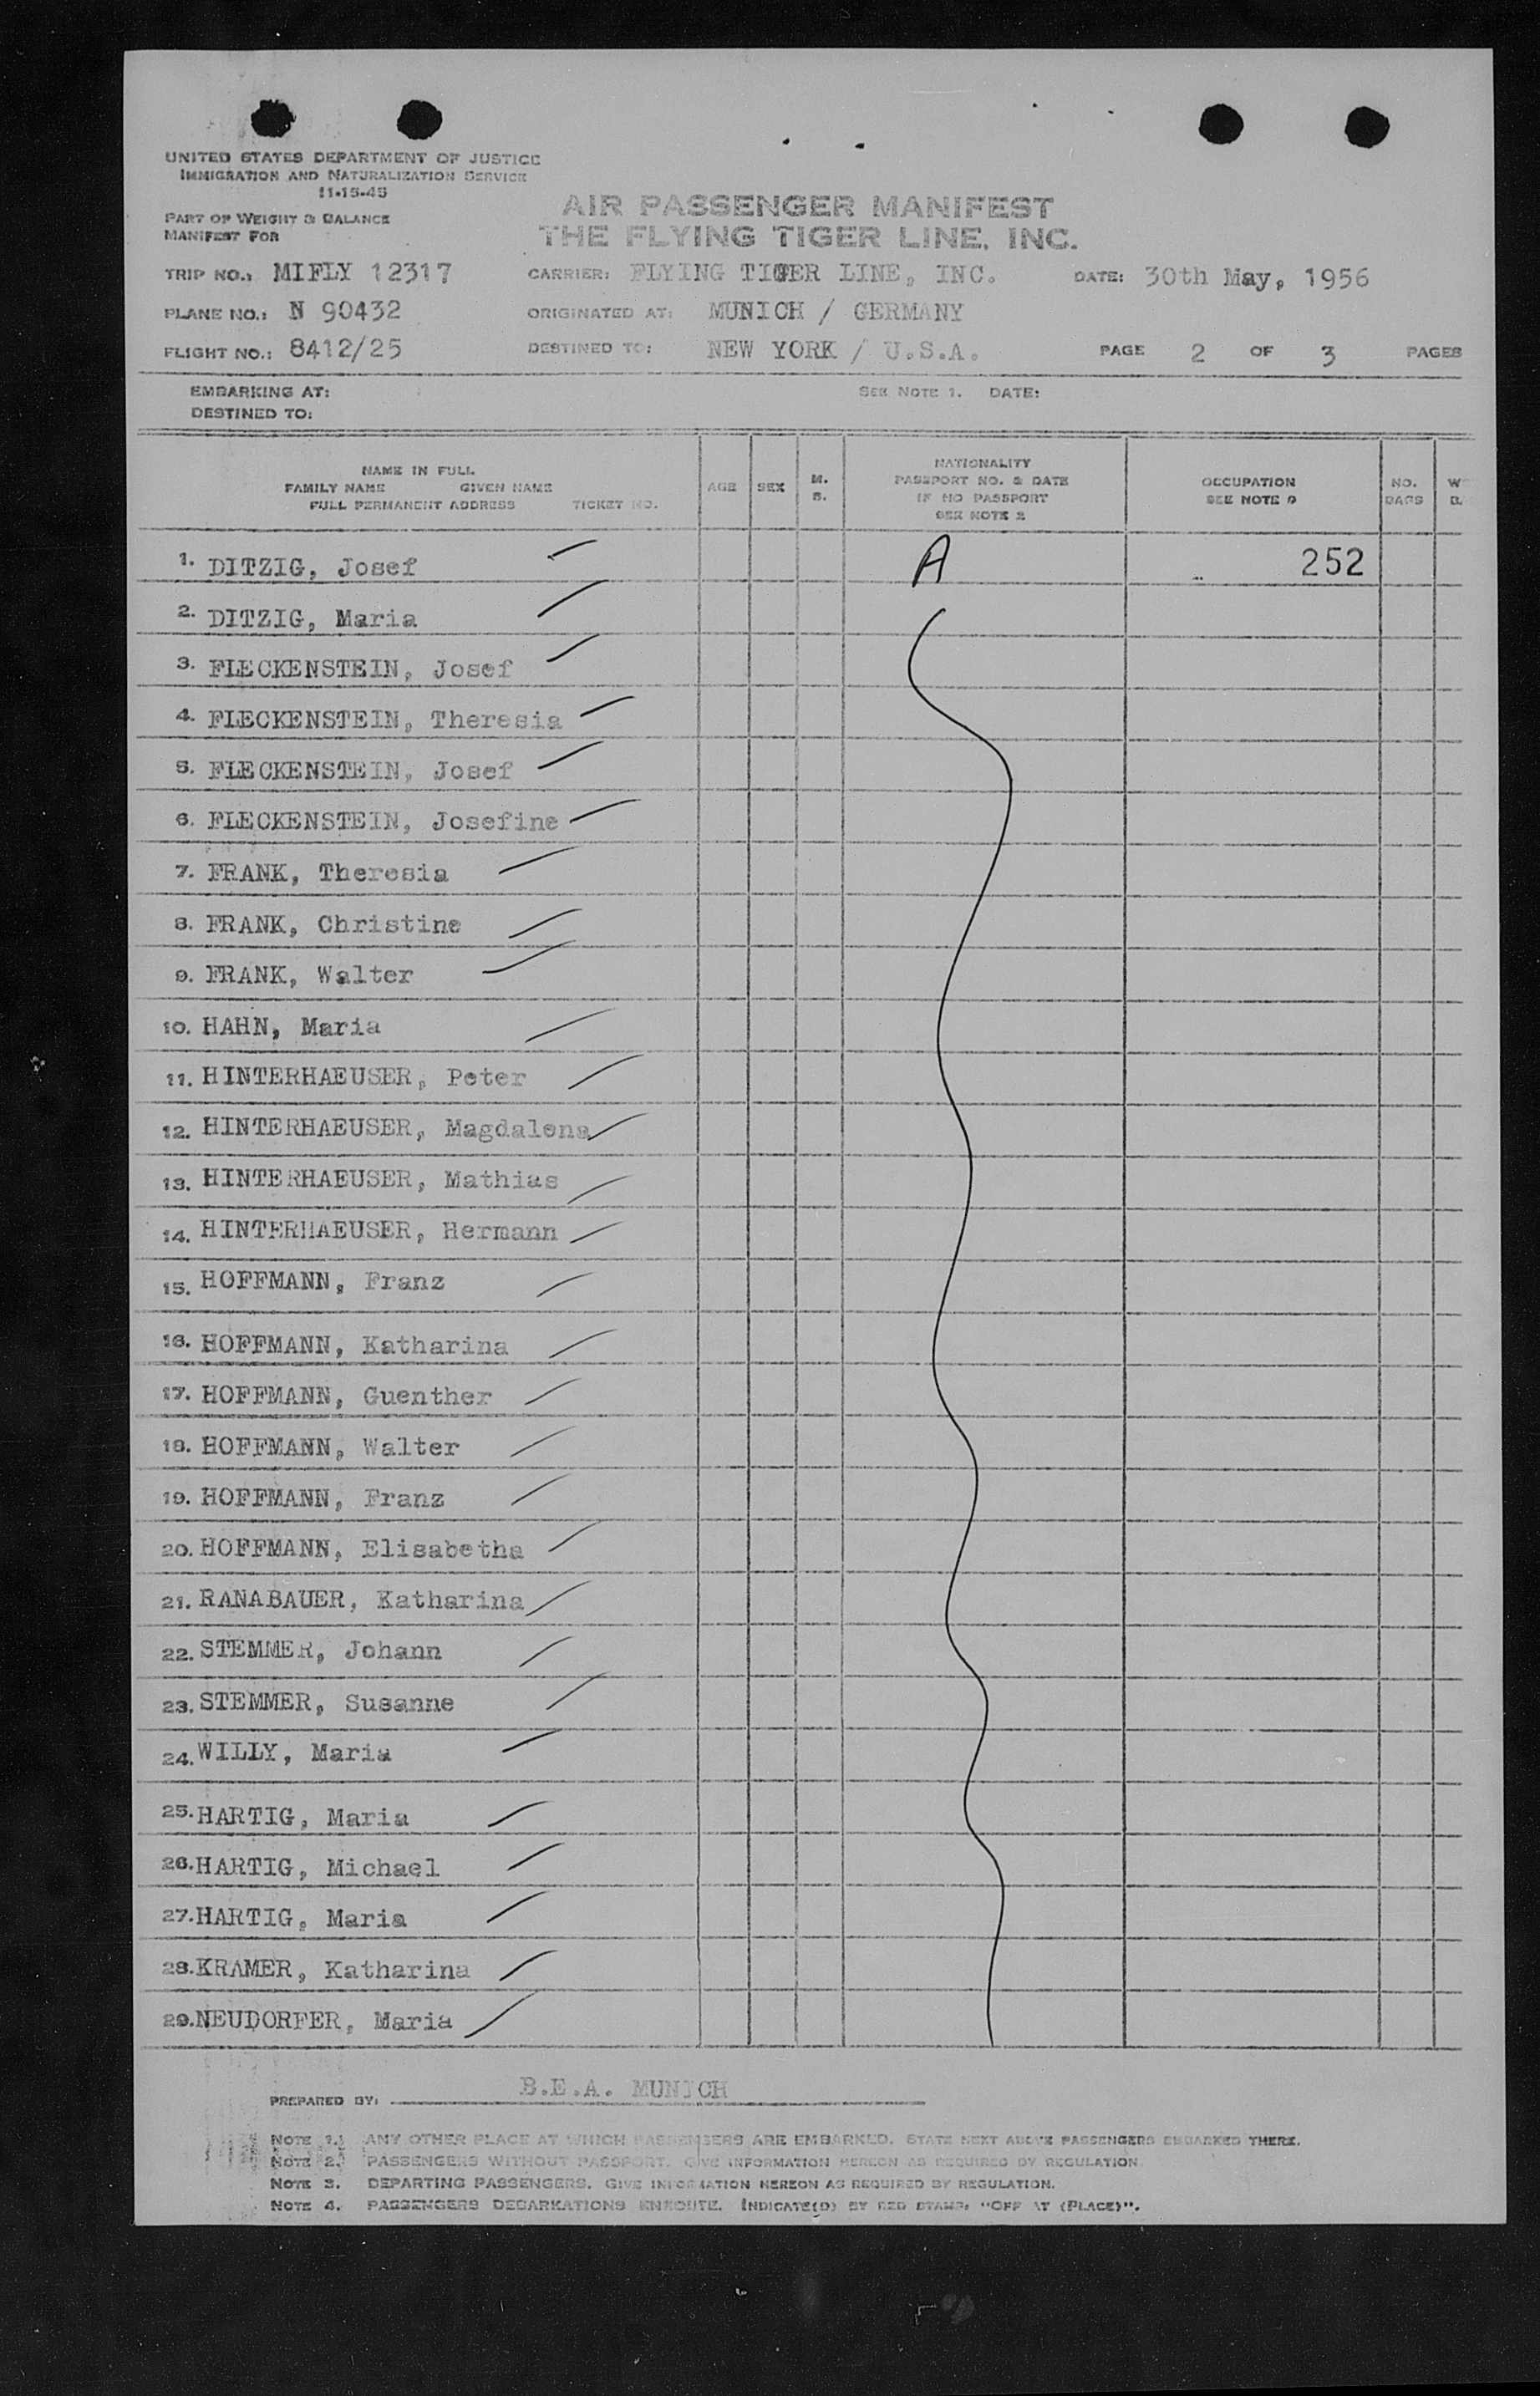 UNITED STATES DEPARTMENT OF JUSTICE
IMMIGRATION AND NATURALIZATION SERVICE
11-15-45
PART OF WEIGHT & BALANCE
MANIFEST FOR
AIR PASSENGER MANIFEST
THE FLYING TIGER LINE, INC.
TRIP NO.: MIFLY 12317 CARRIER: FLYING TIGER LINE, INC. DATE: 30th May, 1956
PLANE NO.: N 90432 ORIGINATED AT: MUNICH / GERMANY
FLIGHT NO.: 8412/25 DESTINED TO: NEW YORK / U.S.A. PAGE 2 OF 3 PAGES
EMBARKING AT: SEE NOTE 1. DATE:
DESTINED TO:
NAME IN FULL
FAMILY NAME GIVEN NAME
FULL PERMANENT ADDRESS TICKET NO.
AGE SEX M. S.
NATIONALITY
PASSPORT NO. & DATE
IF NO PASSPORT
SEE NOTE 2
OCCUPATION
SEE NOTE
NO.
BAGS
1. DITZIG, Josef A 252
2. DITZIG, Maria
3. FLECKENSTEIN, Josef
4. FLECKENSTEIN, Theresia
5. FLECKENSTEIN, Josef
6. FLECKENSTEIN, Josefine
7. FRANK, Theresia
8. FRANK, Christine
9. FRANK, Walter
10. HAHN, Maria
11. HINTERHAEUSER, Peter
12. HINTERHAEUSER, Magdalena
13. HINTERHAEUSER, Mathias
14. HINTERHAEUSER, Hermann
15. HOFFMANN, Franz
16. HOFFMANN, Katharina
17. HOFFMANN, Guenther
18. HOFFMANN, Walter
19. HOFFMANN, Franz
20. HOFFMANN, Elisabetha
21. RANABAUER, Katharina
22. STEMMER, Johann
23. STEMMER, Susanne
24. WILLY, Maria
25. HARTIG, Maria
26. HARTIG, Michael
27. HARTIG, Maria
28. KRAMER, Katharina
29. NEUDORFER, Maria
PREPARED BY: B.E.A. MUNICH
NOTE 1. ANY OTHER PLACE AT WHICH PASSENGERS ARE EMBARKED. STATE NEXT ABOVE PASSENGERS EMBARKED THERE.
NOTE 2. PASSENGERS WITHOUT PASSPORT. GIVE INFORMATION HEREON AS REQUIRED BY REGULATION.
NOTE 3. DEPARTING PASSENGERS. GIVE INFORMATION HEREON AS REQUIRED BY REGULATION.
NOTE 4. PASSENGERS DEBARKATIONS ENROUTE. INDICATE(D) BY RED STAMP: "OFF AT (PLACE)".